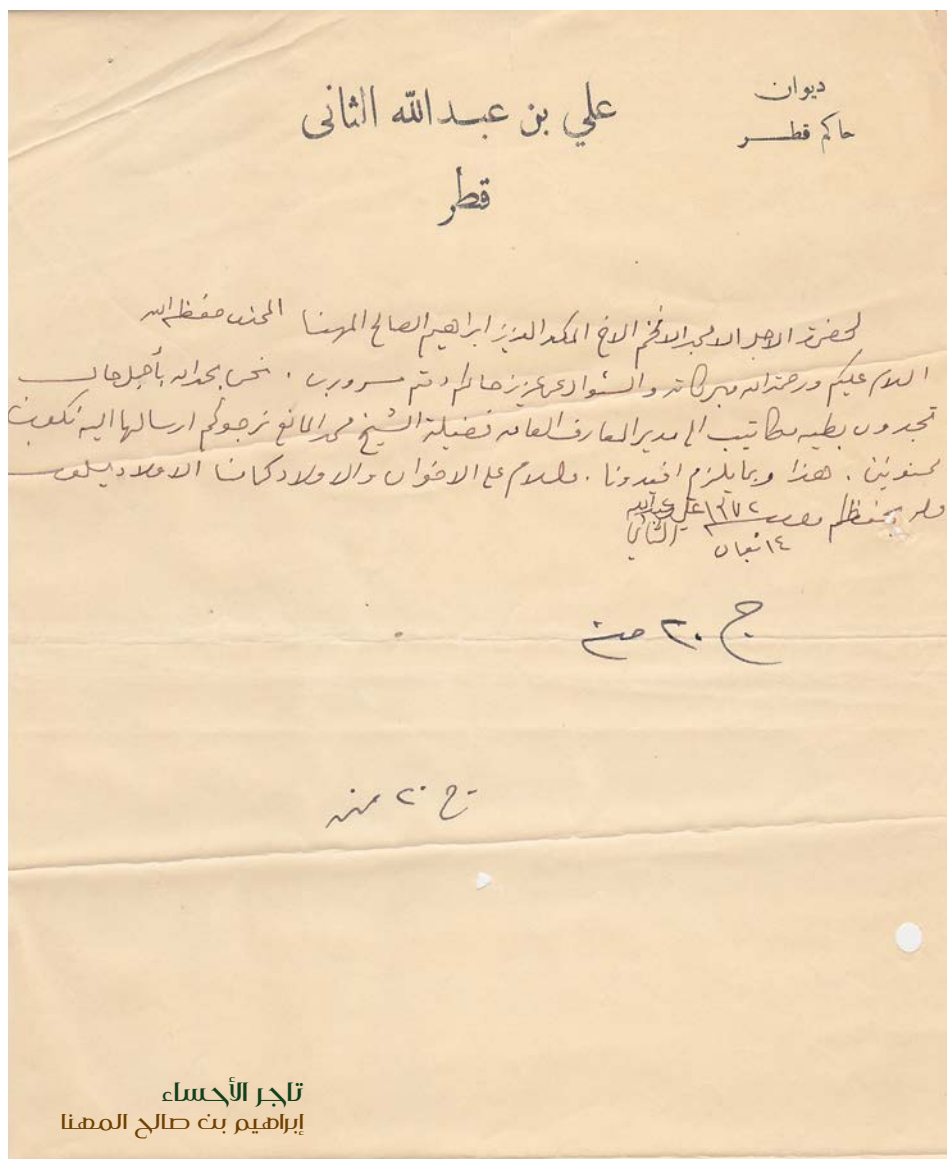 ديوان
حاكم قطر
علي بن عبدالله الثاني
قطر
لحضرة الاجل الامجد الافخم الاخ المكرم العزيز ابراهيم الصالح المهنا المحترم حفظه الله
السلام عليكم ورحمة الله وبركاته والسئوال عن عزيز حالكم دمتم مسرورين . نحن بحمد الله بأجل حال
تجدون بطيه مكاتيب الى مدير المعارف العامه فضيلة الشيخ محمد المانع نرجوكم ارسالها اليه نكون
ممنونين . هذا وبما يلزم افيدونا . والسلام على الاخوان والاولاد كما منا الاولاد يسلمون
والله يحفظكم ١٣٧٢ علي بن عبدالله
الثاني
١٤ شعبان
ج ٢٠ منه
ج ٢٠ منه
تاجر الأحساء
إبراهيم بن صالح المهنا